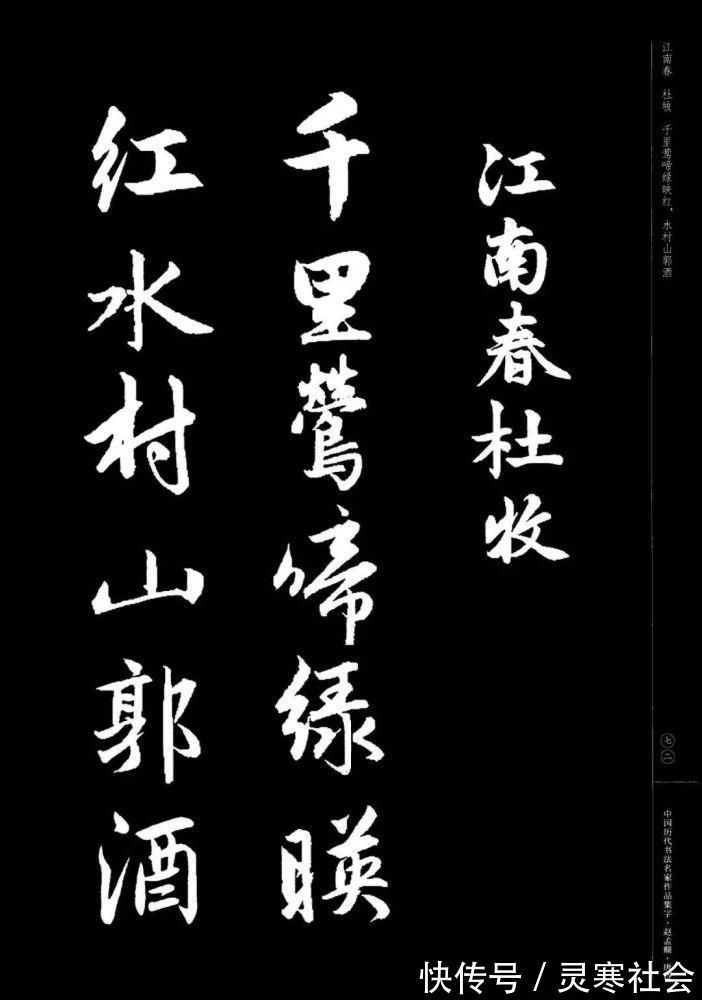 江南春杜牧
千里鶯啼绿暎
红水村山郭酒
江南春 杜牧 千里莺啼绿映红，水村山郭酒
七二
中国历代书法名家作品集字·赵孟頫·唐
快传号/灵寒社会